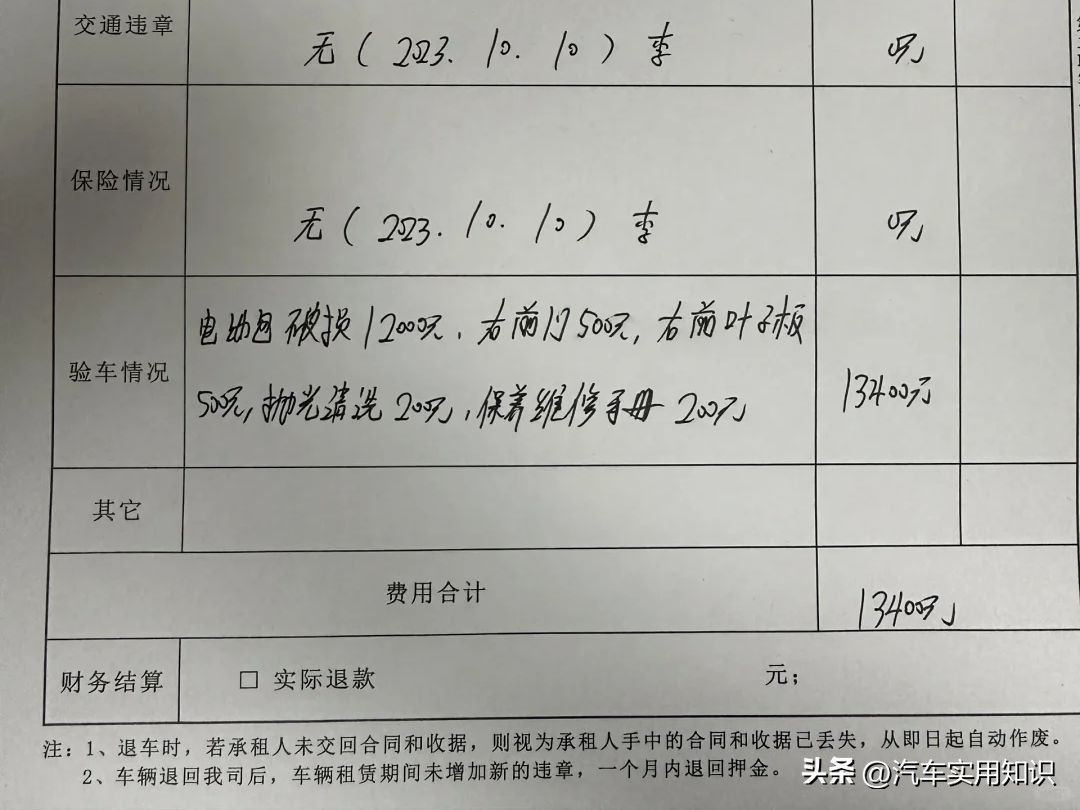 交通违章 无(2023.10.10)李 0元
保险情况 无(2023.10.10)李 0元
电动包破损12000元、右前门500元,右前叶子板
验车情况 13400元
500元,抛光清洗200元,保养维修手册200元
其它
费用合计 13400元
财务结算 □ 实际退款 元;
注:1、退车时,若承租人未交回合同和收据,则视为承租人手中的合同和收据已丢失,从即日起自动作废。
2、车辆退回我司后,车辆租赁期间未增加新的违章,一个月内退回押金。
头条 @汽车实用知识